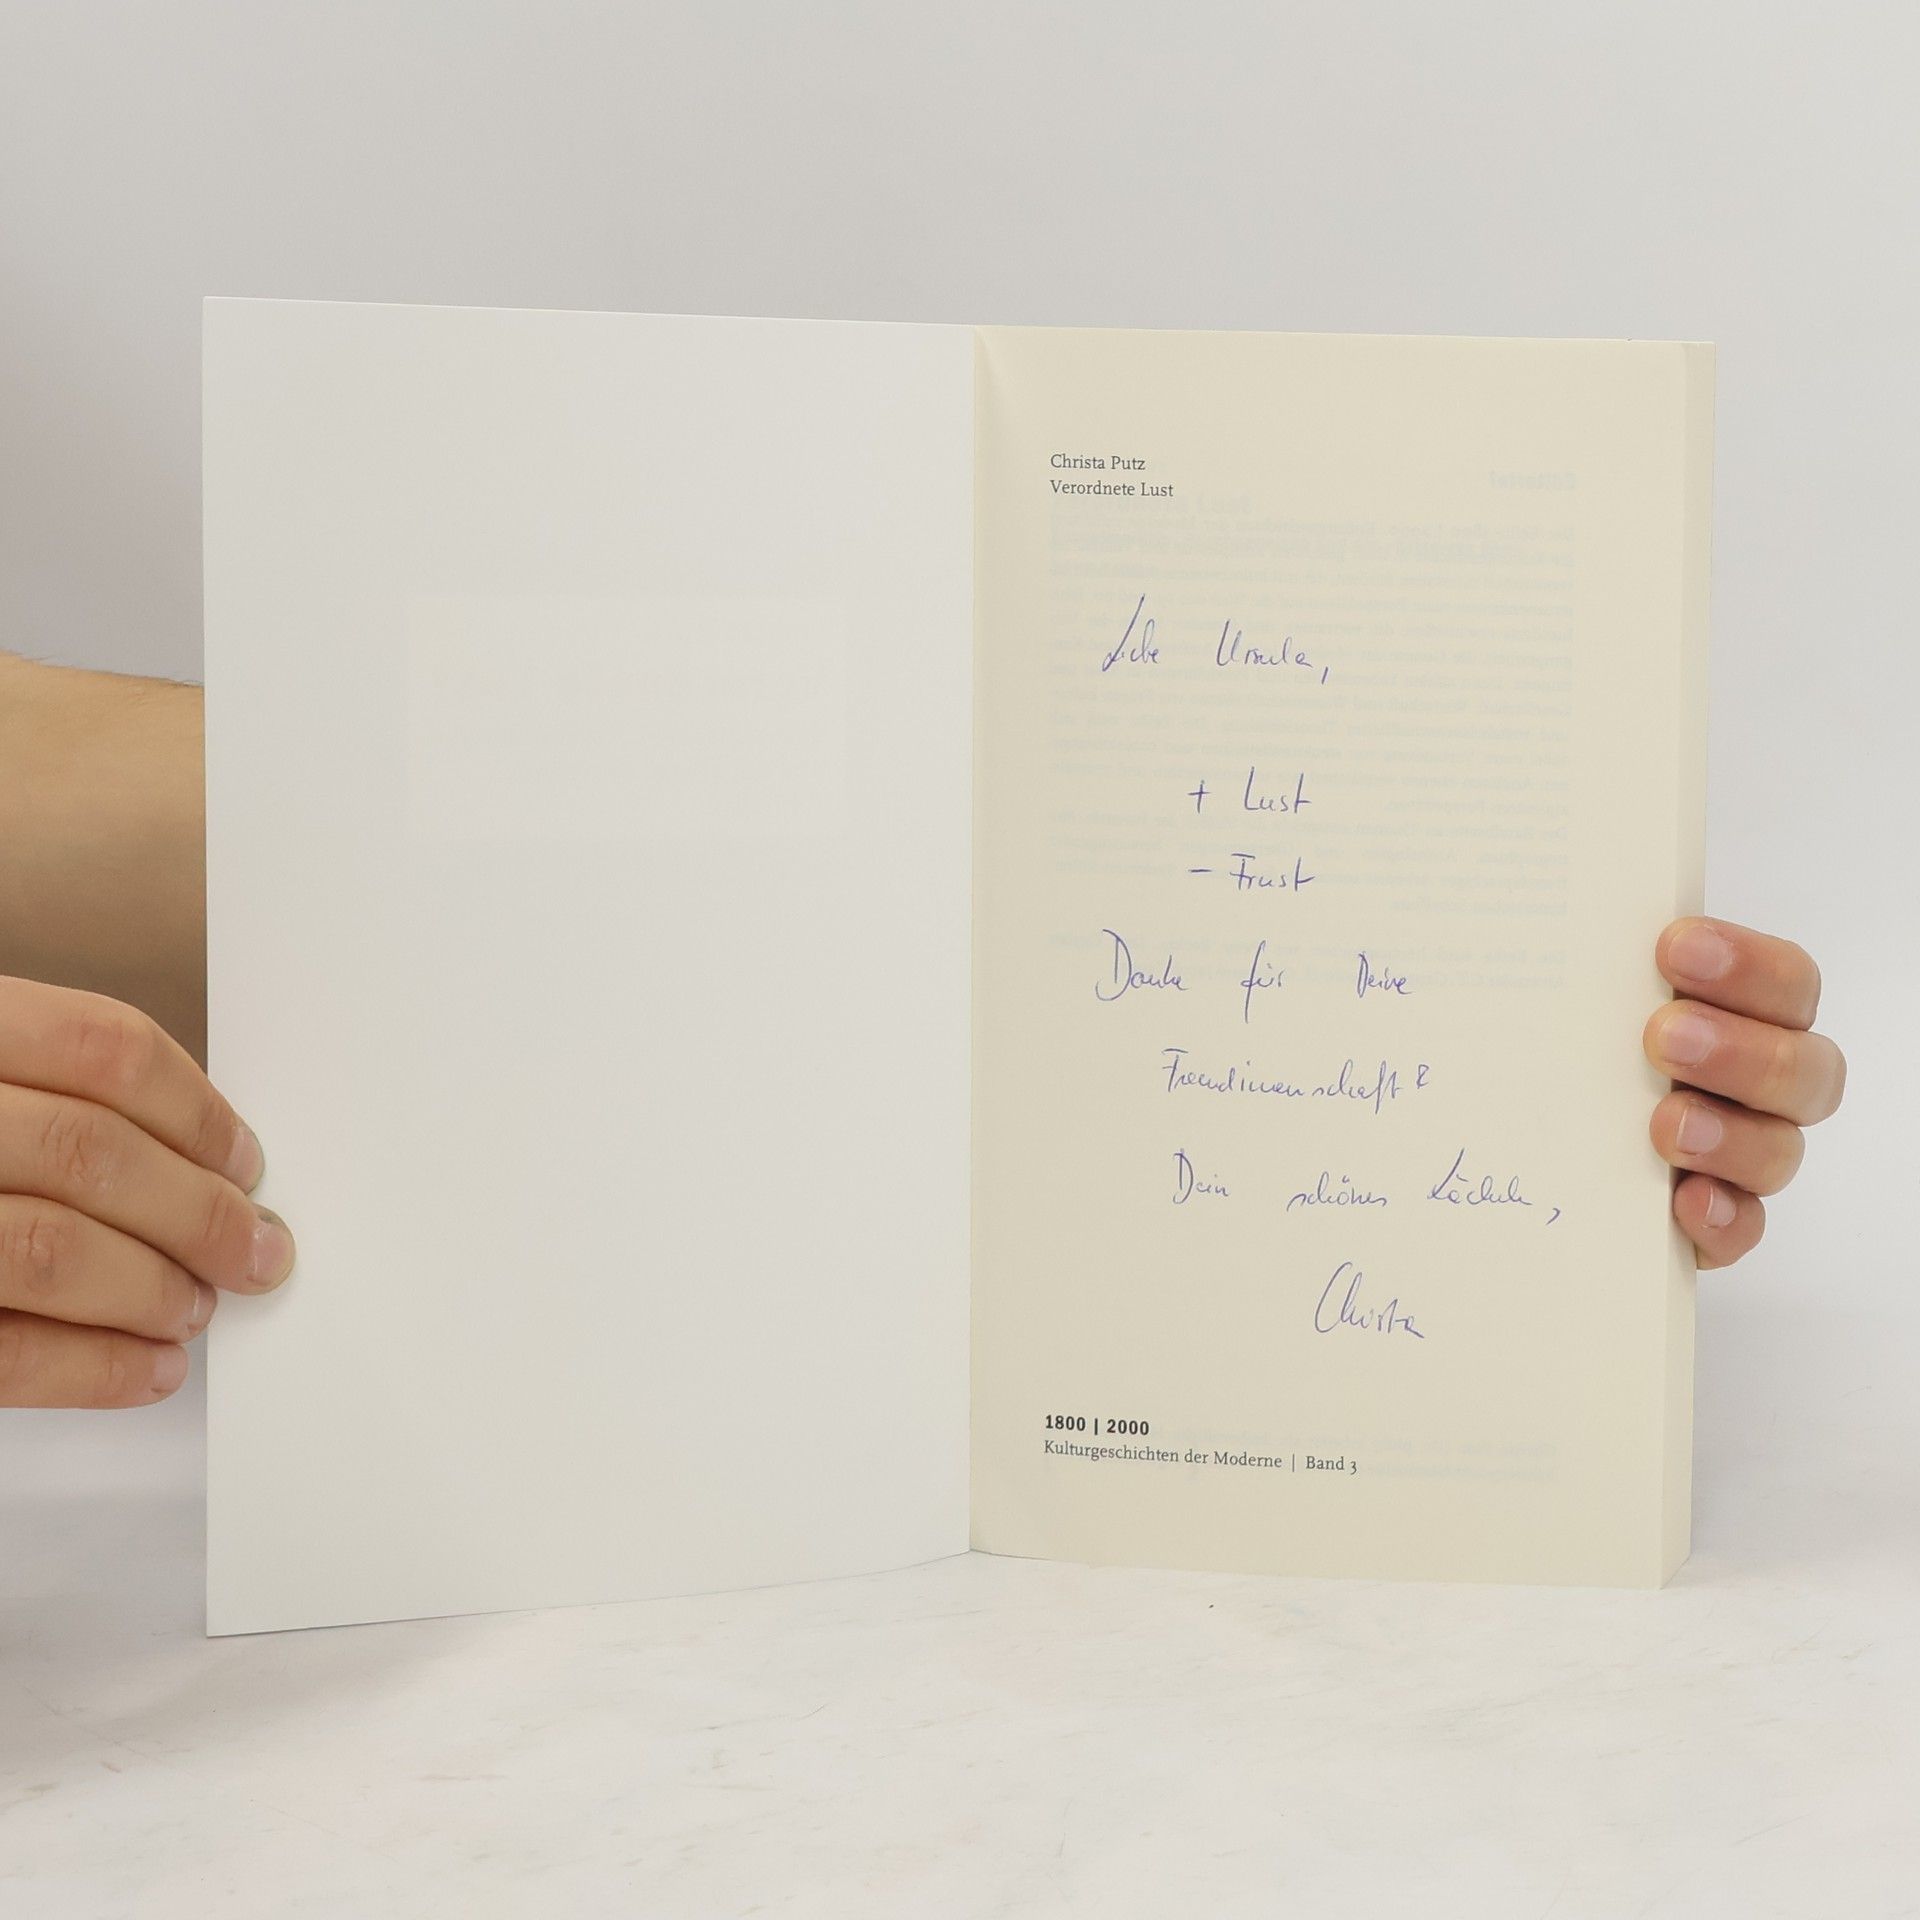 Christa Putz
Verordnete Lust
Liebe Ursula,
+ Lust
– Frust
Danke für Deine
Freundinnenschaft &
Dein schönes Lächeln,
Christa
1800 | 2000
Kulturgeschichten der Moderne | Band 3